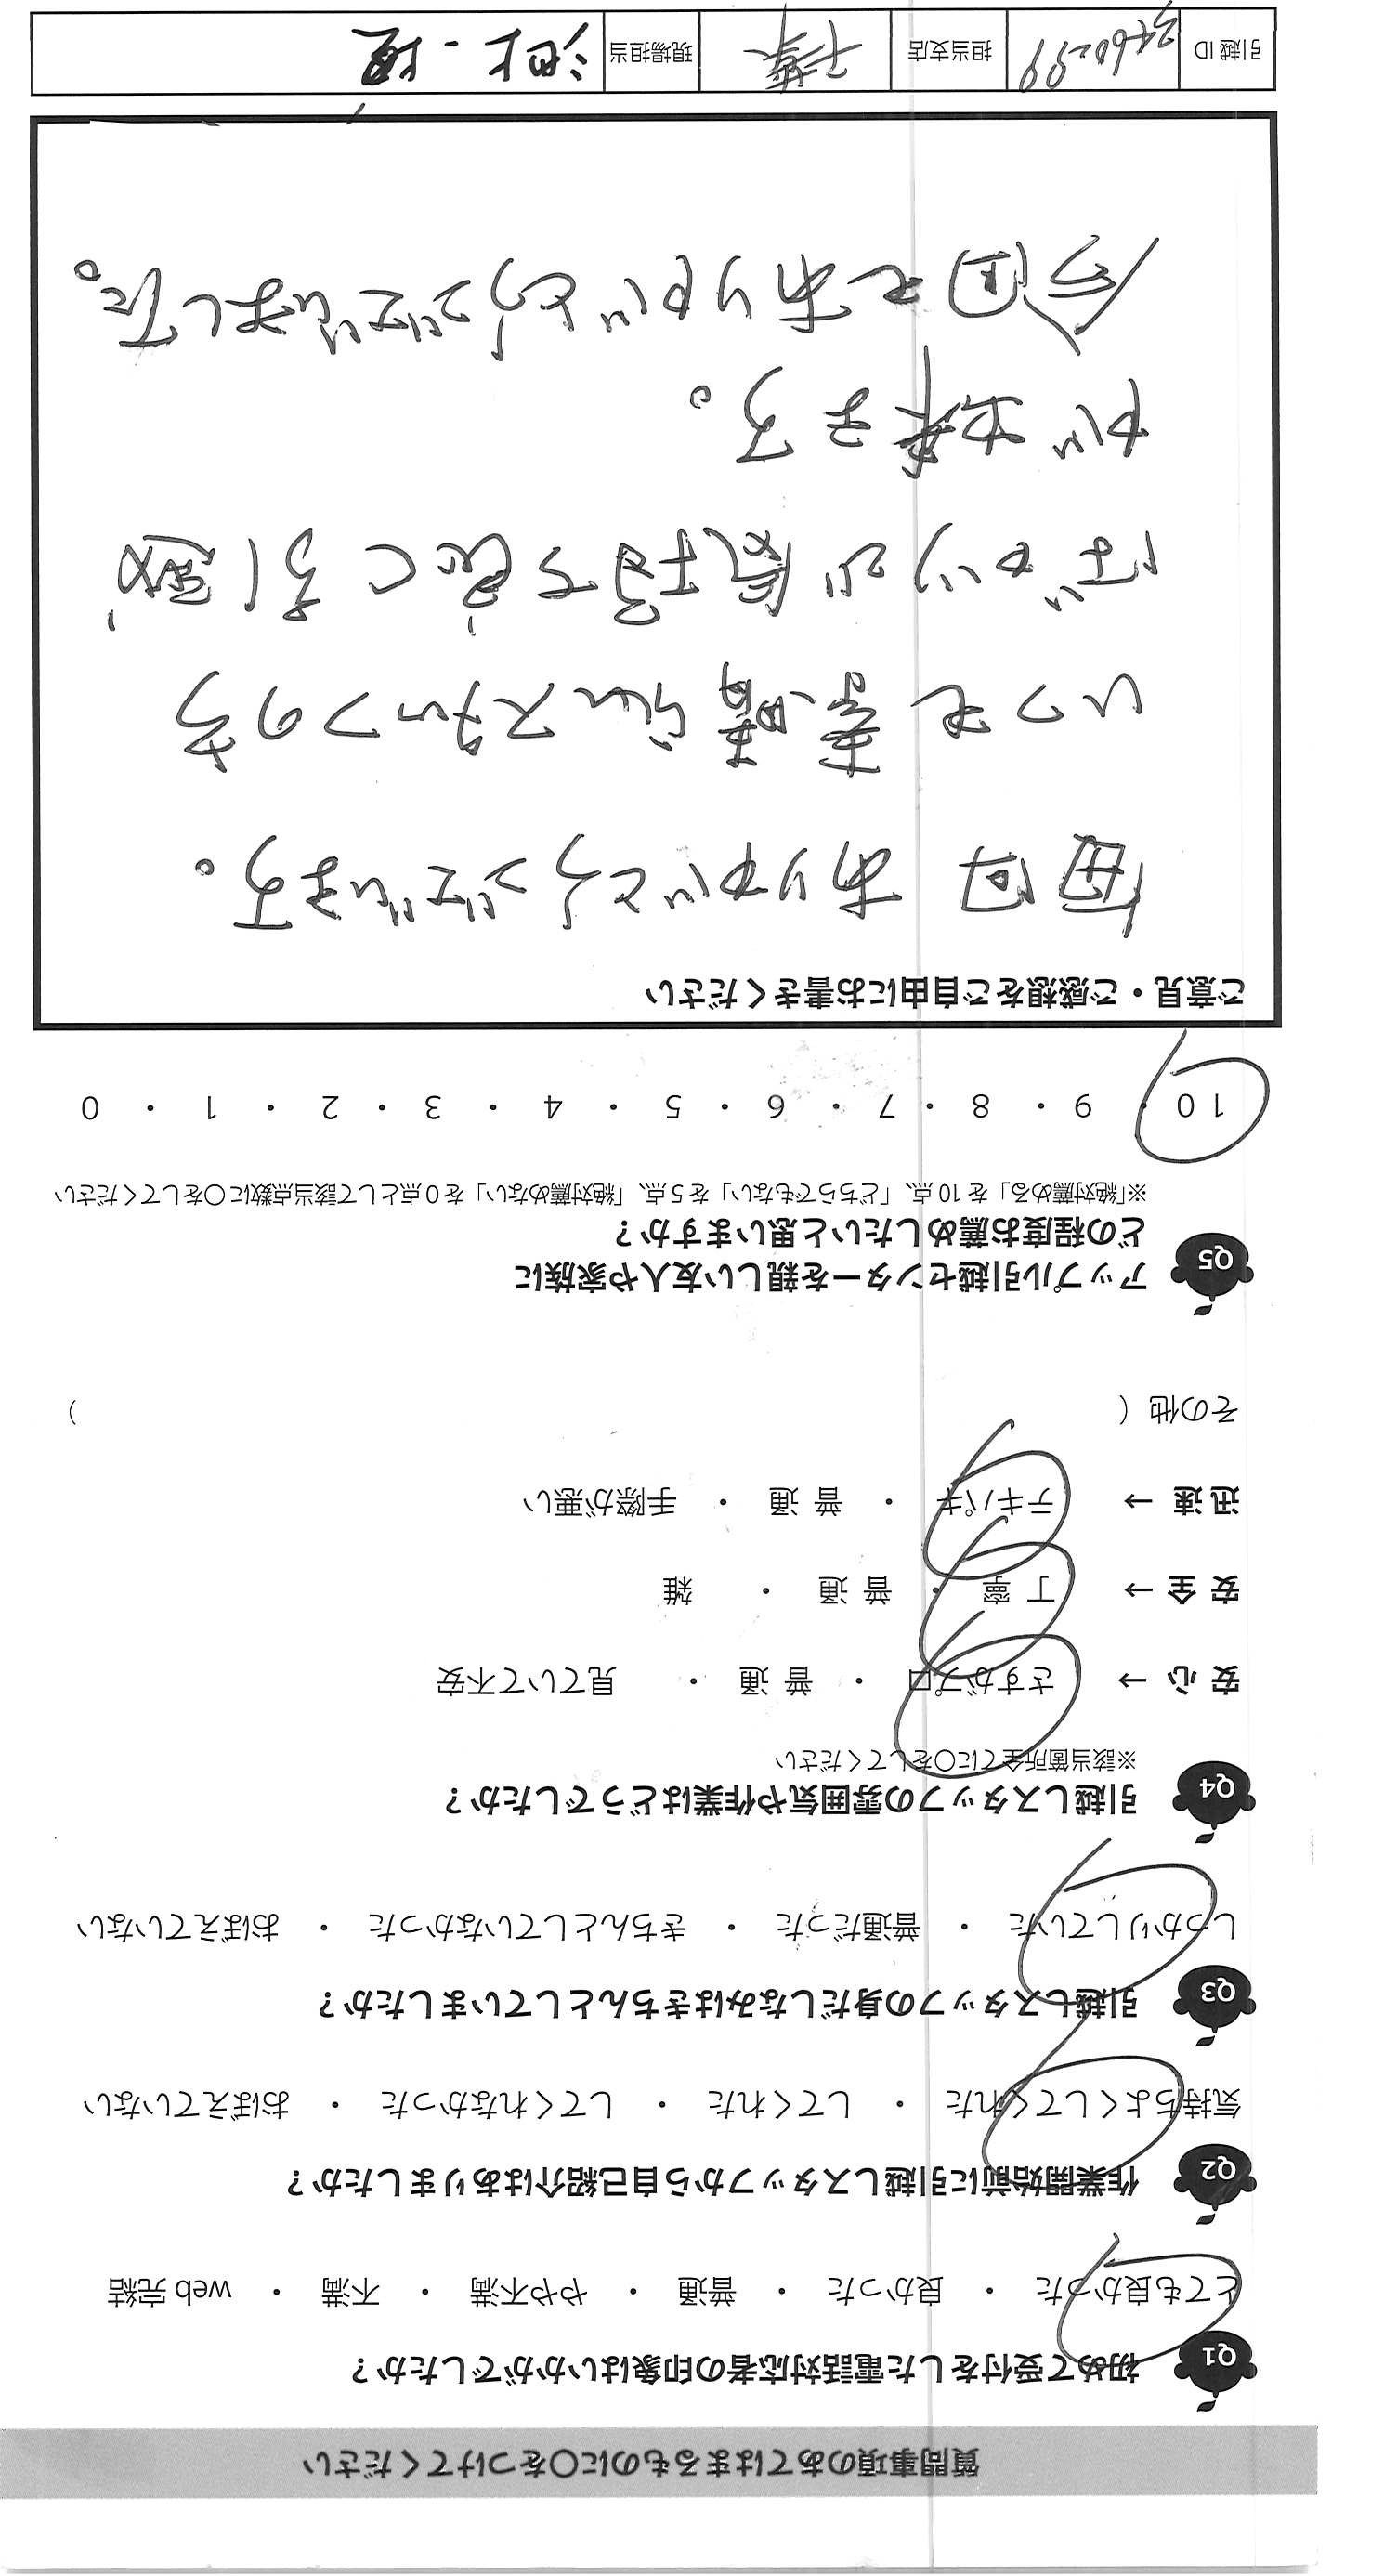 質問事項のあてはまるものに○をつけてください
Q1 初めて受付をした電話対応者の印象はいかがでしたか？
とても良かった ・ 良かった ・ 普通 ・ やや不満 ・ 不満 ・ web 完結
Q2 作業開始前に引越しスタッフから自己紹介はありましたか？
気持ちよくしてくれた ・ してくれた ・ してくれなかった ・ おぼえていない
Q3 引越しスタッフの身だしなみはきちんとしていましたか？
しっかりしていた ・ 普通だった ・ きちんとしていなかった ・ おぼえていない
Q4 引越しスタッフの雰囲気や作業はどうでしたか？
※該当箇所全てに○をしてください
安 心 → さすがプロ ・ 普 通 ・ 見ていて不安
安 全 → 丁 寧 ・ 普 通 ・ 雑
迅 速 → テキパキ ・ 普 通 ・ 手際が悪い
その他（ ）
Q5 アップル引越センターを親しい友人や家族に
どの程度お薦めしたいと思いますか？
※「絶対薦める」を 10 点、「どちらでもない」を 5 点、「絶対薦めない」を 0 点として該当点数に○をしてください
10 ・ 9 ・ 8 ・ 7 ・ 6 ・ 5 ・ 4 ・ 3 ・ 2 ・ 1 ・ 0
ご意見・ご感想をご自由にお書きください
毎回ありがとうございます。
いつも素晴らしいスタッフの方
ばかりで気持ち良く引越
が出来ます。
今回もありがとうございました。
引越 ID 担当支店 千葉 現場担当 池上・堀